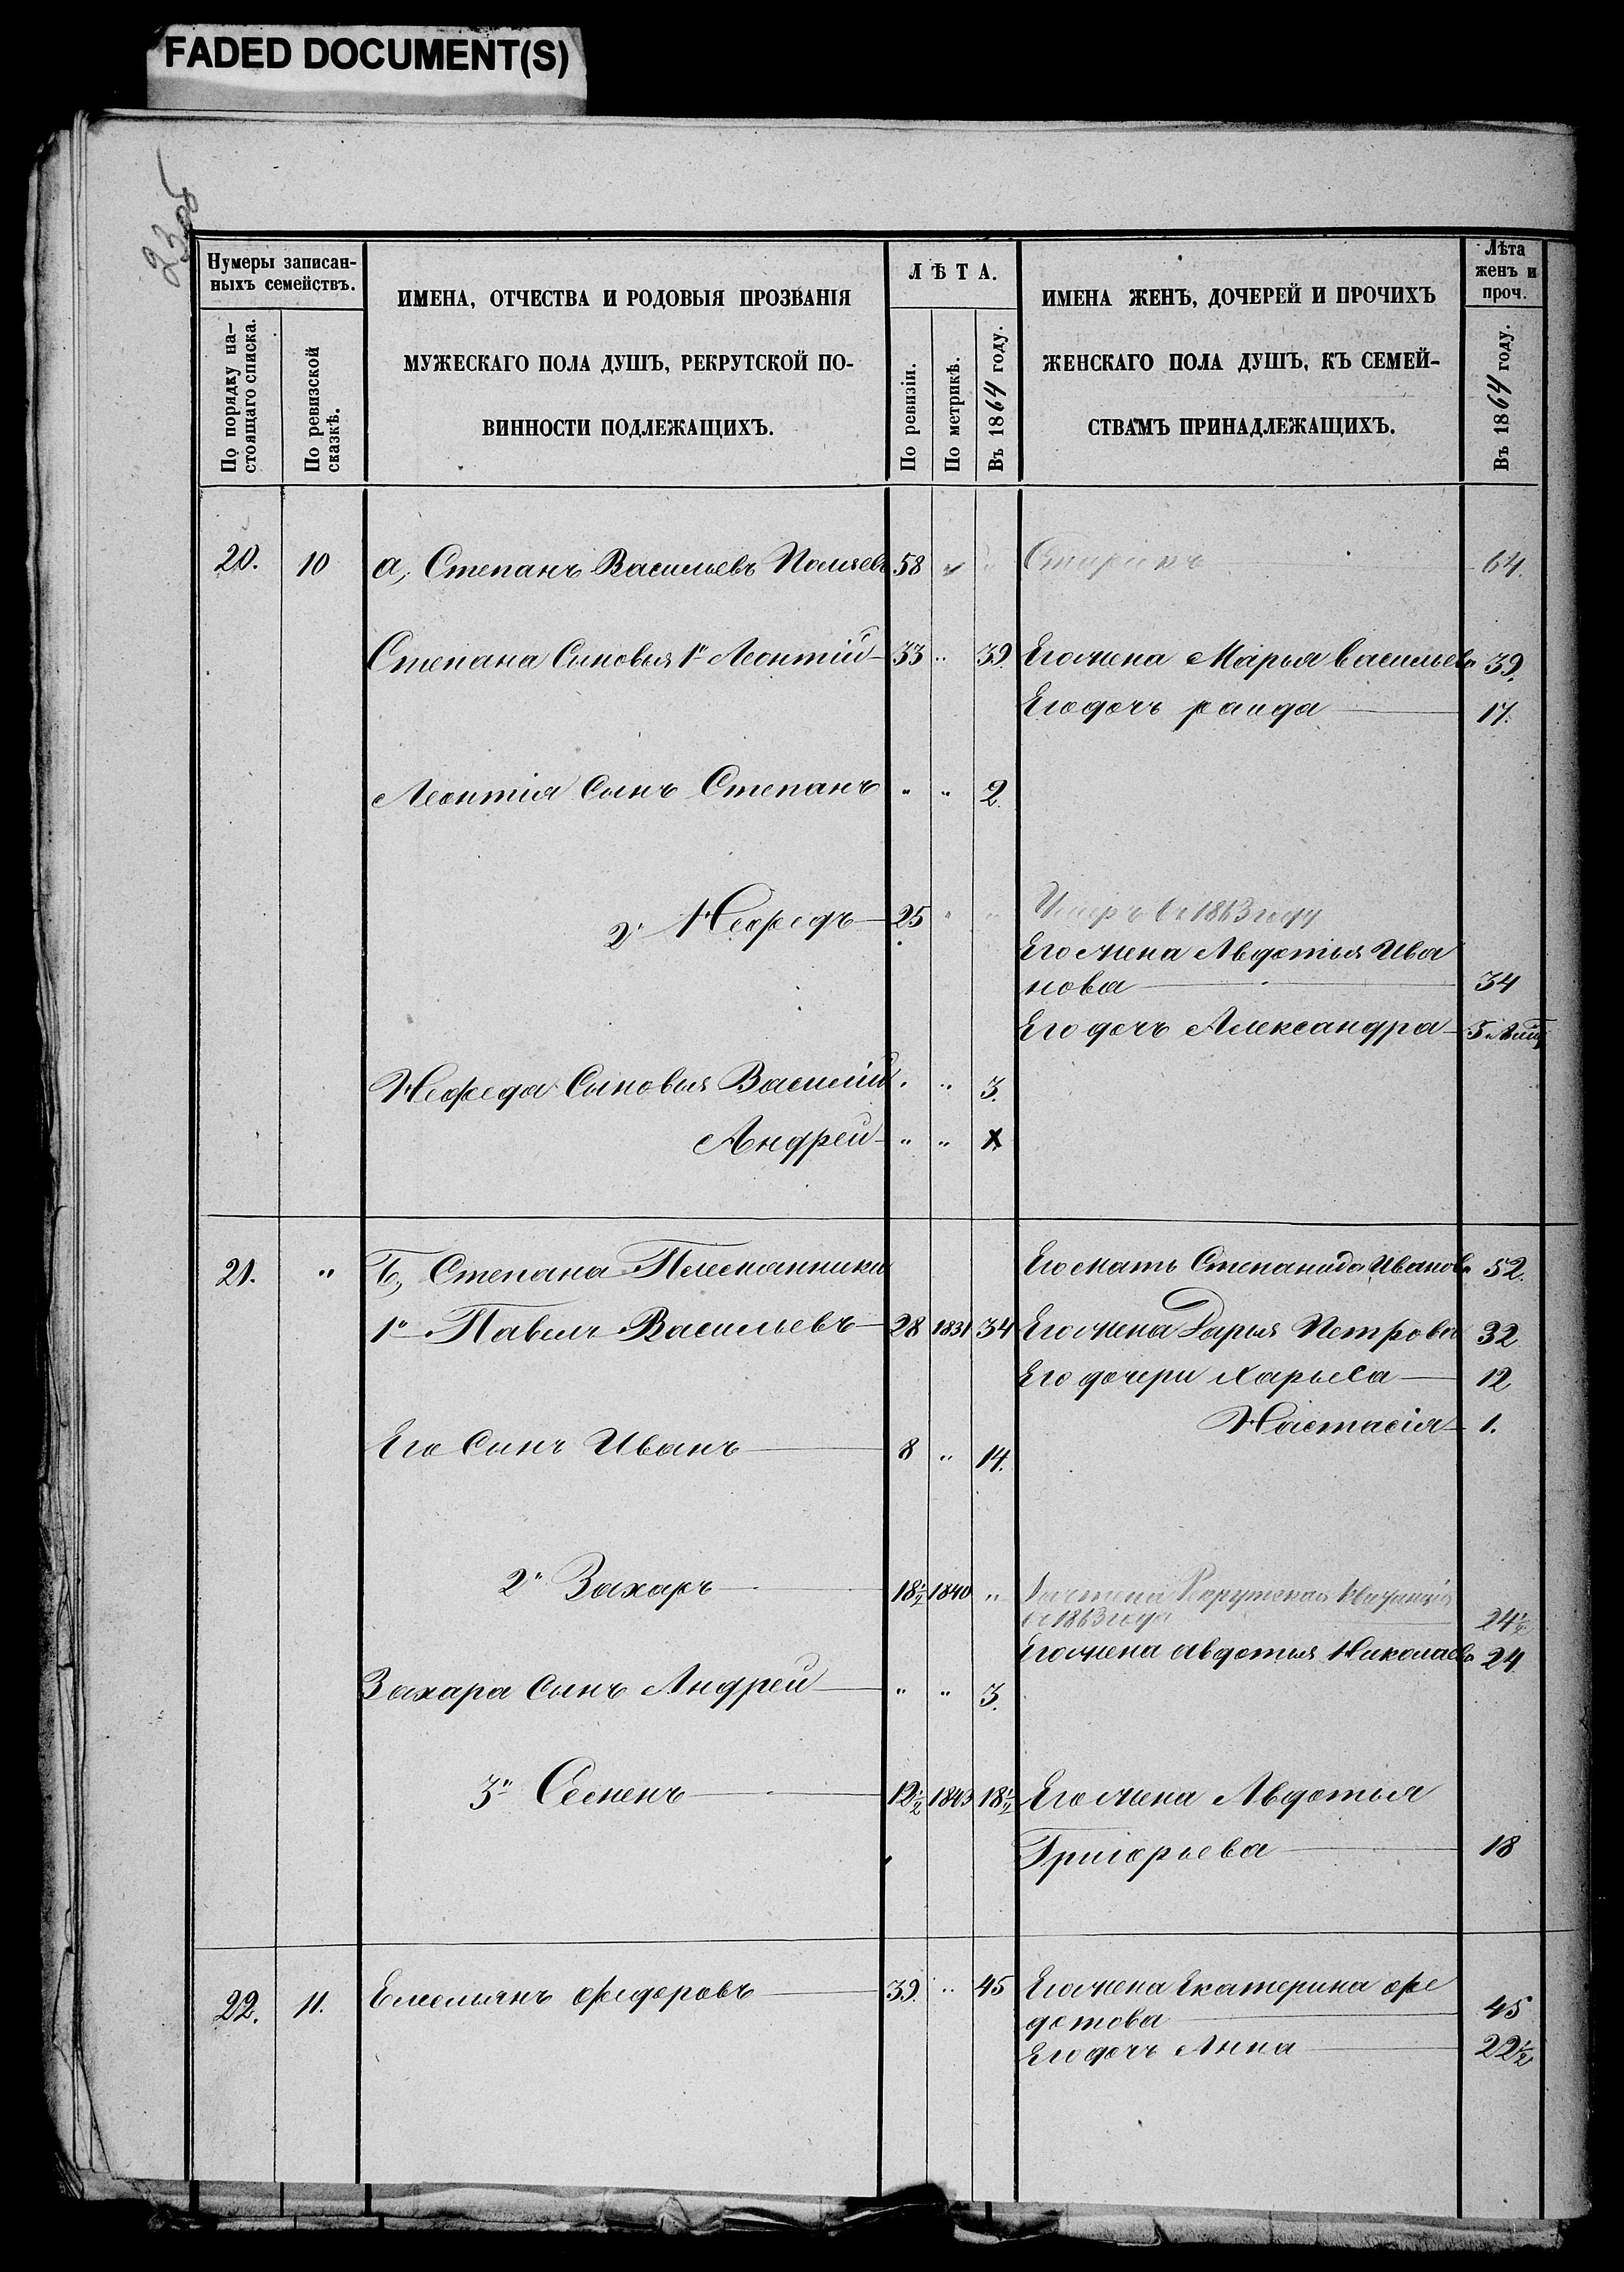 FADED DOCUMENT(S)
23об
Нумеры записан-
ныхъ семействъ.
По порядку на-
стоящаго списка.
По ревизской
сказкѣ.
ИМЕНА, ОТЧЕСТВА И РОДОВЫЯ ПРОЗВАНІЯ
МУЖЕСКАГО ПОЛА ДУШЪ, РЕКРУТСКОЙ ПО-
ВИННОСТИ ПОДЛЕЖАЩИХЪ.
ЛѢТА.
По ревизіи.
По метрикѣ.
Въ 1864 году.
ИМЕНА ЖЕНЪ, ДОЧЕРЕЙ И ПРОЧИХЪ
ЖЕНСКАГО ПОЛА ДУШЪ, КЪ СЕМЕЙ-
СТВАМЪ ПРИНАДЛЕЖАЩИХЪ.
Лѣта
женъ и
проч.
Въ 1864 году.
20. 10 а, Степанъ Васильевъ 58 " " Старикъ 64.
Степана Сыновья 1й Леонтій 33 " 39. Его жена Марья Васильева 39.
Его дочь раида 17.
Леонтія Сынъ Степанъ " " 2.
2й Нефедъ 25 " " Умеръ въ 1863 году
Его жена Авдотья Ива
нова 34
Его дочь Александра 5
Нефеда Сыновья Василій " " 3.
Андрей " "
21. " Б, Степана Племянники Его мать Степанида Иванова 52.
1й Павелъ Васильевъ 28 1831 34 Его жена Дарья Петрова 32
Его дочери 12
Настасія 1.
Его Сынъ Иванъ 8 " 14.
2й Захаръ 18½ 1840 " Рекрутская Квитанція
въ 1863 года 24½
Его жена Авдотья Николаева 24
Захара Сынъ Андрей " " 3.
3й Семенъ 12½ 1843 18½ Его жена Авдотья
Григорьева 18
22. 11. Емельянъ Федоровъ 39. " 45 Его жена Екатерина Фе
дотова 45
Его дочь Анна 22½